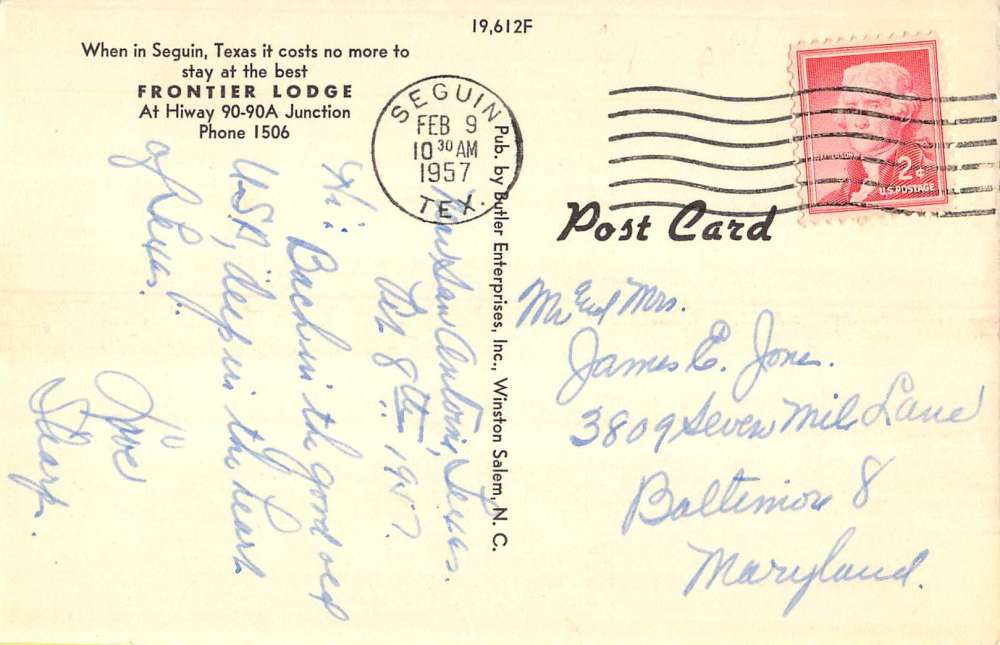 19,612F
When in Seguin, Texas it costs no more to
stay at the best
FRONTIER LODGE
At Hiway 90-90A Junction
Phone 1506
SEGUIN
FEB 9
10 30 AM
1957
TEX.
2¢
U.S. POSTAGE
Post Card
Pub. by Butler Enterprises, Inc., Winston Salem, N. C.
San Antonio, Texas.
Feb 8th 1957.
Hi: Back in th good old
U.S.A, deep in the heart
of Texas.
Love
Sharp.
Mr and Mrs.
James E. Jones.
3809 Seven Mile Lane
Baltimore 8
Maryland.